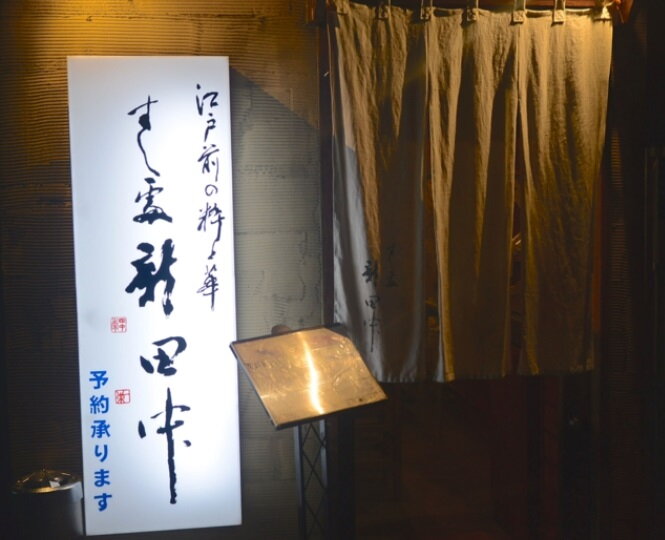 江戸前の粋と華
すし處
新田中
予約承ります
新田中